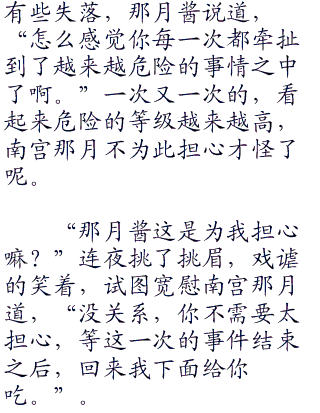 有些失落，那月酱说道，
“怎么感觉你每一次都牵扯
到了越来越危险的事情之中
了啊。”一次又一次的，看
起来危险的等级越来越高，
南宫那月不为此担心才怪了
呢。
“那月酱这是为我担心
嘛？”连夜挑了挑眉，戏谑
的笑着，试图宽慰南宫那月
道，“没关系，你不需要太
担心，等这一次的事件结束
之后，回来我下面给你
吃。”。